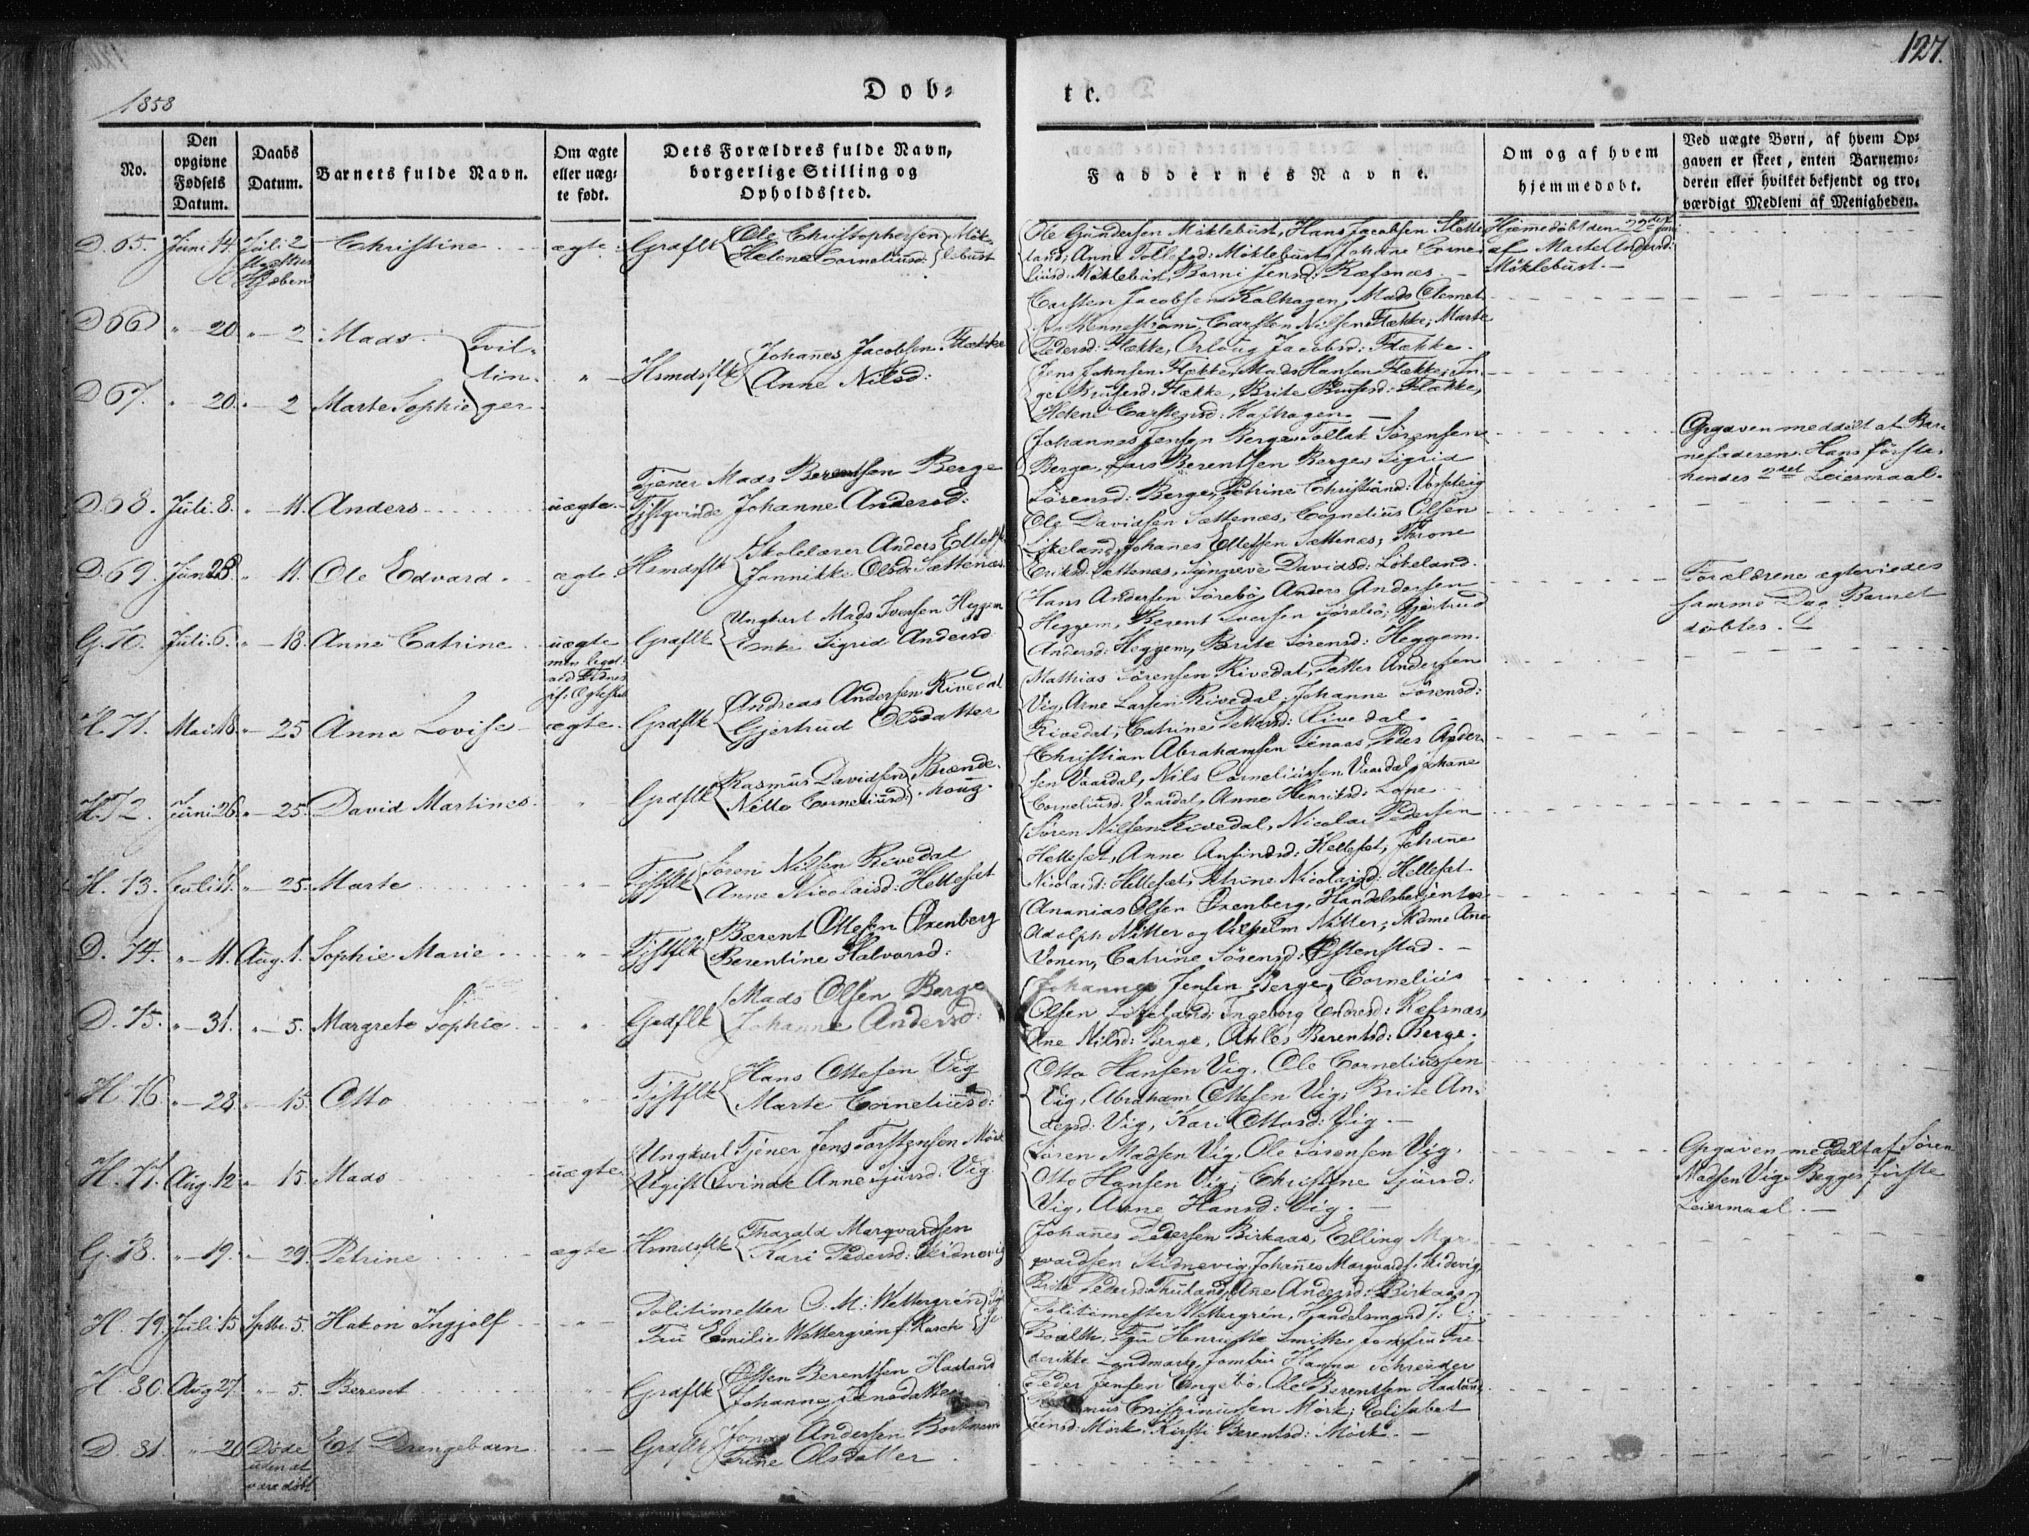 1858
Døb-
te.
127.
No.
Den opgivne Fødsels Datum.
Daabs Datum.
Barnets fulde Navn.
Om ægte eller uægte født.
Dets Forældres fulde Navn, borgerlige Stilling og Opholdssted.
Faddernes Navne.
Om og af hvem hjemmedøbt.
Ved uægte Børn, af hvem Opgaven er skeet, enten Barnemoderen eller hvilket bekjendt og troværdigt Medlem af Menigheden.
D. 65. Juni 14 Juli 2 Christine ægte. Grdflk Ole Christophersen Helene Corneliusd: Møklebust
Ole Gundersen Møklebust, Hans Jacobsen
land, Anne Tollefsd: Møklebust, Johane Corne
liusd: Møklebust, Jensd: Ræfsnæs.
Hjemmedøbt den 22de Juni
af Marte Andersd:
Møklebust.
D 66 " 20 " 2 Mads. Tvil-
Carsten Jacobsen Kalhagen, Mads Clemet
sen, Carsten Nilsen Flække, Marte
Pedersd: Flække, Jacobsd: Flække.
lin- " Hsmdsflk Johañes Jacobsen Flække Anne Nilsd:
D 67. " 20. " 2 Marte Sophie ger
Jens Johnsen Flække, Mads Hansen Flække, In-
ger Flække, Brite Flække,
Helene Carstensd: Kalhagen.
D. 68. Juli. 8. " 11. Anders uægte. Tjener Mads Berentsen Berge
Johanne Andersd:
Johannes Jensen Berge, Tollak Sørensen
Berge, Lars Berentsen Berge, Sigrid
Sørensd: Berge, Petrine Christiansd:
Opgaven meddelt af Bar-
nefaderen. Hans første,
hendes 2det Leiermaal.
D. 69. Juni 28. " 11. Ole Edvard. ægte. Hsmdsflk Skolelærer Anders Ellefs:
Jannikke Olsd: Sættenæs
Ole Davidsen Sættenæs, Cornelius Olsen
Løkeland, Johanes Ellefsen Sættenæs, Throne
Eriksd: Sættenæs, Synneve Davidsd: Løkeland.
G. 70. Juli. 6. " 18. Anne Catrine uægte Grdflk Ungkarl Mads Iversen Heggem
Enke Sigrid Andersd:
Hans Andersen Sørebø, Anders Andersen
Heggem, Berent Iversen Sørebø, Gjertrud
Andersd: Heggem, Brite Sørensd: Heggem.
Forældrene ægteviedes
samme Dag Barnet
døbtes.
H. 71. Mai 18. " 25 Anne Lovise ægte. Grdflk Andreas Andersen Rivedal
Gjertrud Olsdatter
Mathias Sørensen Rivedal, Petter Andersen
Vig, Arne Larsen Rivedal, Johanne Sørensd:
Rivedal, Catrine Rivedal.
H. 72. Juni 26. " 25. David Martines. " Grdflk Rasmus Davidsen Brænde-
Nette Corneliusd: houg.
Christian Abrahamsen Tenaas, Peder Ander-
sen Vaardal, Nils Corneliussen Vaardal, Johane
Corneliusd: Vaardal, Anne Henriksd:
H. 73. Juli 17. " 25. Marte " Søren Nilsen Rivedal
Anne Nicolaisd: Hellesæt
Søren Nilsen Rivedal, Nicolai Pedersen
Hellesæt, Anne Hellesæt, Johanne
Nicolaisd: Hellesæt, Petrine Nicolaisd: Hellesæt.
D. 74. " 11. Aug. 1. Sophie Marie " Bærent Ottesen Oxenberg
Berentine Halvorsd:
Ananias Olsen Oxenberg, Handelsbetjenter
Adolph Nitter og Vilhelm Nitter, Mdme Ane
Vonen, Catrine Sørensd:
D. 75. " 31. " 5. Margrete Sophie " Grdflk Mads Olsen Berge
Johanne Andersd:
Johannes Jensen Berge, Cornelius
Olsen Løkeland, Ingeborg Endresd: Ræfsnæs,
Ane Nilsd: Berge, Berentsd: Berge.
H. 76. " 28. " 15. Otto " Hans Ottesen Vig
Marte Corneliusd:
Otto Hansen Vig, Ole Corneliussen
Vig, Abraham Ottesen Vig, Brite An-
dersd: Vig, Kari Ottosd: Vig.
H. 77. Aug. 12 " 15. Mads uægte. Ungkarl Tjener Jens Torstensen Mørk
Ugift Qvinde Anne Sjursd: Vig
Søren Madsen Vig, Ole Sørensen Vig,
Otto Hansen Vig, Christine Sjursd:
Vig, Anne Hansd: Vig.
Opgaven meddelt af Søren
Madsen Vig. Begges første
Leiermaal.
G. 78. " 19. " 29. Petrine ægte Hsmdsflk Tharald Marqvardsen
Kari Pedersd: Skidnevig
Johañes Pedersen Birkaas, Elling Mar-
qvardsen Skidnevig, Johañes Marqvards:
Brite Pedersd: Ane Andersd: Birkaas
H. 79. Juli 15 Septbr. 5. Hakon Ingjolf " Politimester C. M: Wettergrén
Fru Emilie Wettergrén f. Rasch
Politimester Wettergrén, Handelsmand
Fru Henriette Smith, Jomfru Fre-
derikke Landmark, Jomfru Hanna Schreuder
H. 80. Aug. 27. " 5. Berent " Grdflk Østen Berentsen Haaland
Johanne Jensdatter
Peder Jensen Engebø, Ole Berentsen Haaland,
Rasmus Crispinussen Mørk, Elisabet
Jensd: Mørk, Kirsti Berentsd: Mørk.
D. 81. " 20 Døde Et Drengebarn " Grdflk Jonas Andersen
Olsdatter.
uden at
være døbt